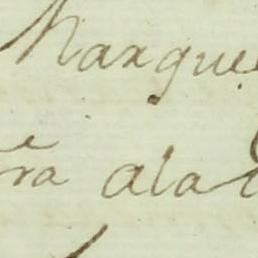 Marque
ra ala